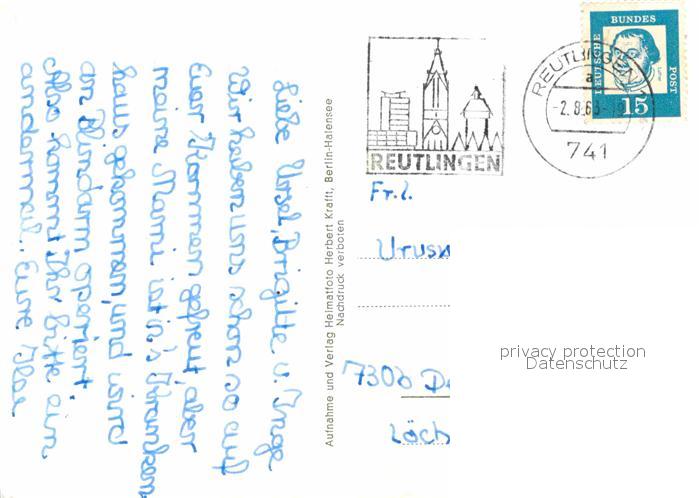 Liebe Ursel, Brigitte u. Inge
Wir haben uns schon so auf
Euer Kommen gefreut, aber
meine Mami ist in's Kranken
haus gekommen, und wird
am Blindarm operiert.
Also kommt Ihr bitte ein
andermal. Eure Ilse
Aufnahme und Verlag Heimatfoto Herbert Krafft, Berlin-Halensee
Nachdruck verboten
REUTLINGEN
REUTLINGEN
a
-2.8.63
741
DEUTSCHE
BUNDES
POST
15
Frl.
Ursu
7300
Löch
privacy protection
Datenschutz